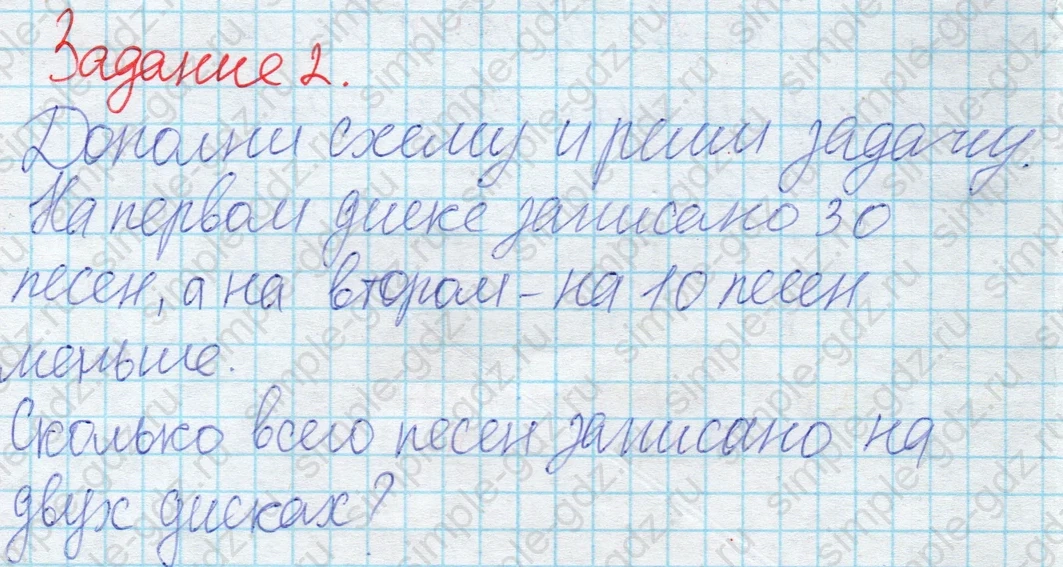 Задание 2.
Дополни схему и реши задачу.
На первом диске записано 30
песен, а на втором - на 10 песен
меньше.
Сколько всего песен записано на
двух дисках?
simple-gdz.ru